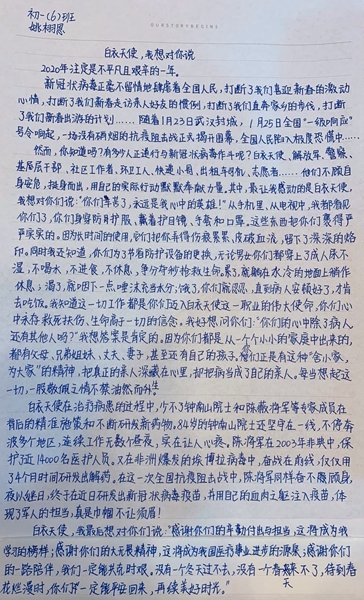 初一(6)班
姚栩恩
白衣天使,我想对你说
2020年注定是不平凡且艰辛的一年。
新型冠状病毒正毫不留情地肆虐着全国人民,打断了我们喜迎新春的激动
心情,打断了我们新春走访亲人好友的惯例,打断了我们直奔家乡的步伐,打断
了我们新春出游的计划……随着1月23日武汉封城,1月25日全国“一级响应”
号令响起,一场没有硝烟的抗疫阻击战正式揭开围幕,全国人民陷入极度恐慌中……
然而,你知道吗?有多少人正进行与新冠状病毒作斗呢?白衣天使、解放军、警察、
基层干部、社区工作者、环卫工人、快递小哥、出租车司机、志愿者……他们不顾自
身安危,挺身而出,用自己的实际行动默默奉献力量。其中,最让我感动的是白衣天使。
我想对你们说:“你们辛苦了,永远是我心中的英雄!”从手机里、从电视中,我都看见
你们了,你们身穿防护服、戴着护目镜、手套和口罩。这些东西把你们裹得严
严实实的。因为长时间的使用,它们把你弄得伤痕累累、皮破血流,留下了深深的烙
印。同时我还知道,你们为了节省防护设备的更换,无论男女你们都穿上了成人尿不
湿,不喝水,不进食,不休息,争分夺秒抢救生命。累了,就躺在水冷的地面上稍作
休息;渴了,就咽下一点唾沫充当水分;饿了,你们就忍忍,直到病人安顿好了,才肯
去吃饭。我知道这一切工作都是你们迈入白衣天使这一职业的伟大使命,你们心
中永存救死扶伤、生命高于一切的信念。我好想问你们:“你们的心中除了病人
还有其他人吗?”我想答案是肯定的。因为你们都是从一个个小小的家庭中出来的,
都有父母、兄弟姐妹、丈夫、妻子,甚至还有自己的孩子,你们正是有这种“舍小家,
为大家”的精神,把真正的亲人深藏在心里,却把病当成了自己的亲人。每当想起这
一切,一股敬佩之情不禁油然而升。
白衣天使在治疗病患的过程中,少不了钟南山院士和陈薇将军等专家成员在
背后的精准施策和不断研发新药物。84岁的钟南山院士还坚守在一线,不停奔
波多个地区,连续工作无数个昼夜,实在让人心疼。陈将军在2003年非典中,保
护了近14000名医护人员。又在非洲爆发的埃博拉病毒中,奋战在前线,仅仅用
了4个日时间研发出解药。在这一次全国抗疫阻击战中,陈将军同样奋不顾身,
夜以继日,终于在近日研发出新冠状病毒疫苗,并用自己的血肉之躯注入疫苗,体
现了军人的担当,真是巾帼不让须眉!
白衣天使,我最后想对你们说:“感谢你们的辛勤付出与担当,这将成为我
学习的榜样;感谢你们的大无畏精神,这将成为我国医疗事业进步的源泉;感谢你们
的一路陪伴,我们一定能共克时艰。没有一个冬天过不去,没有一个春天来不了,待到春
花烂漫时,你们定一定能平安回来,再续美好时光。”